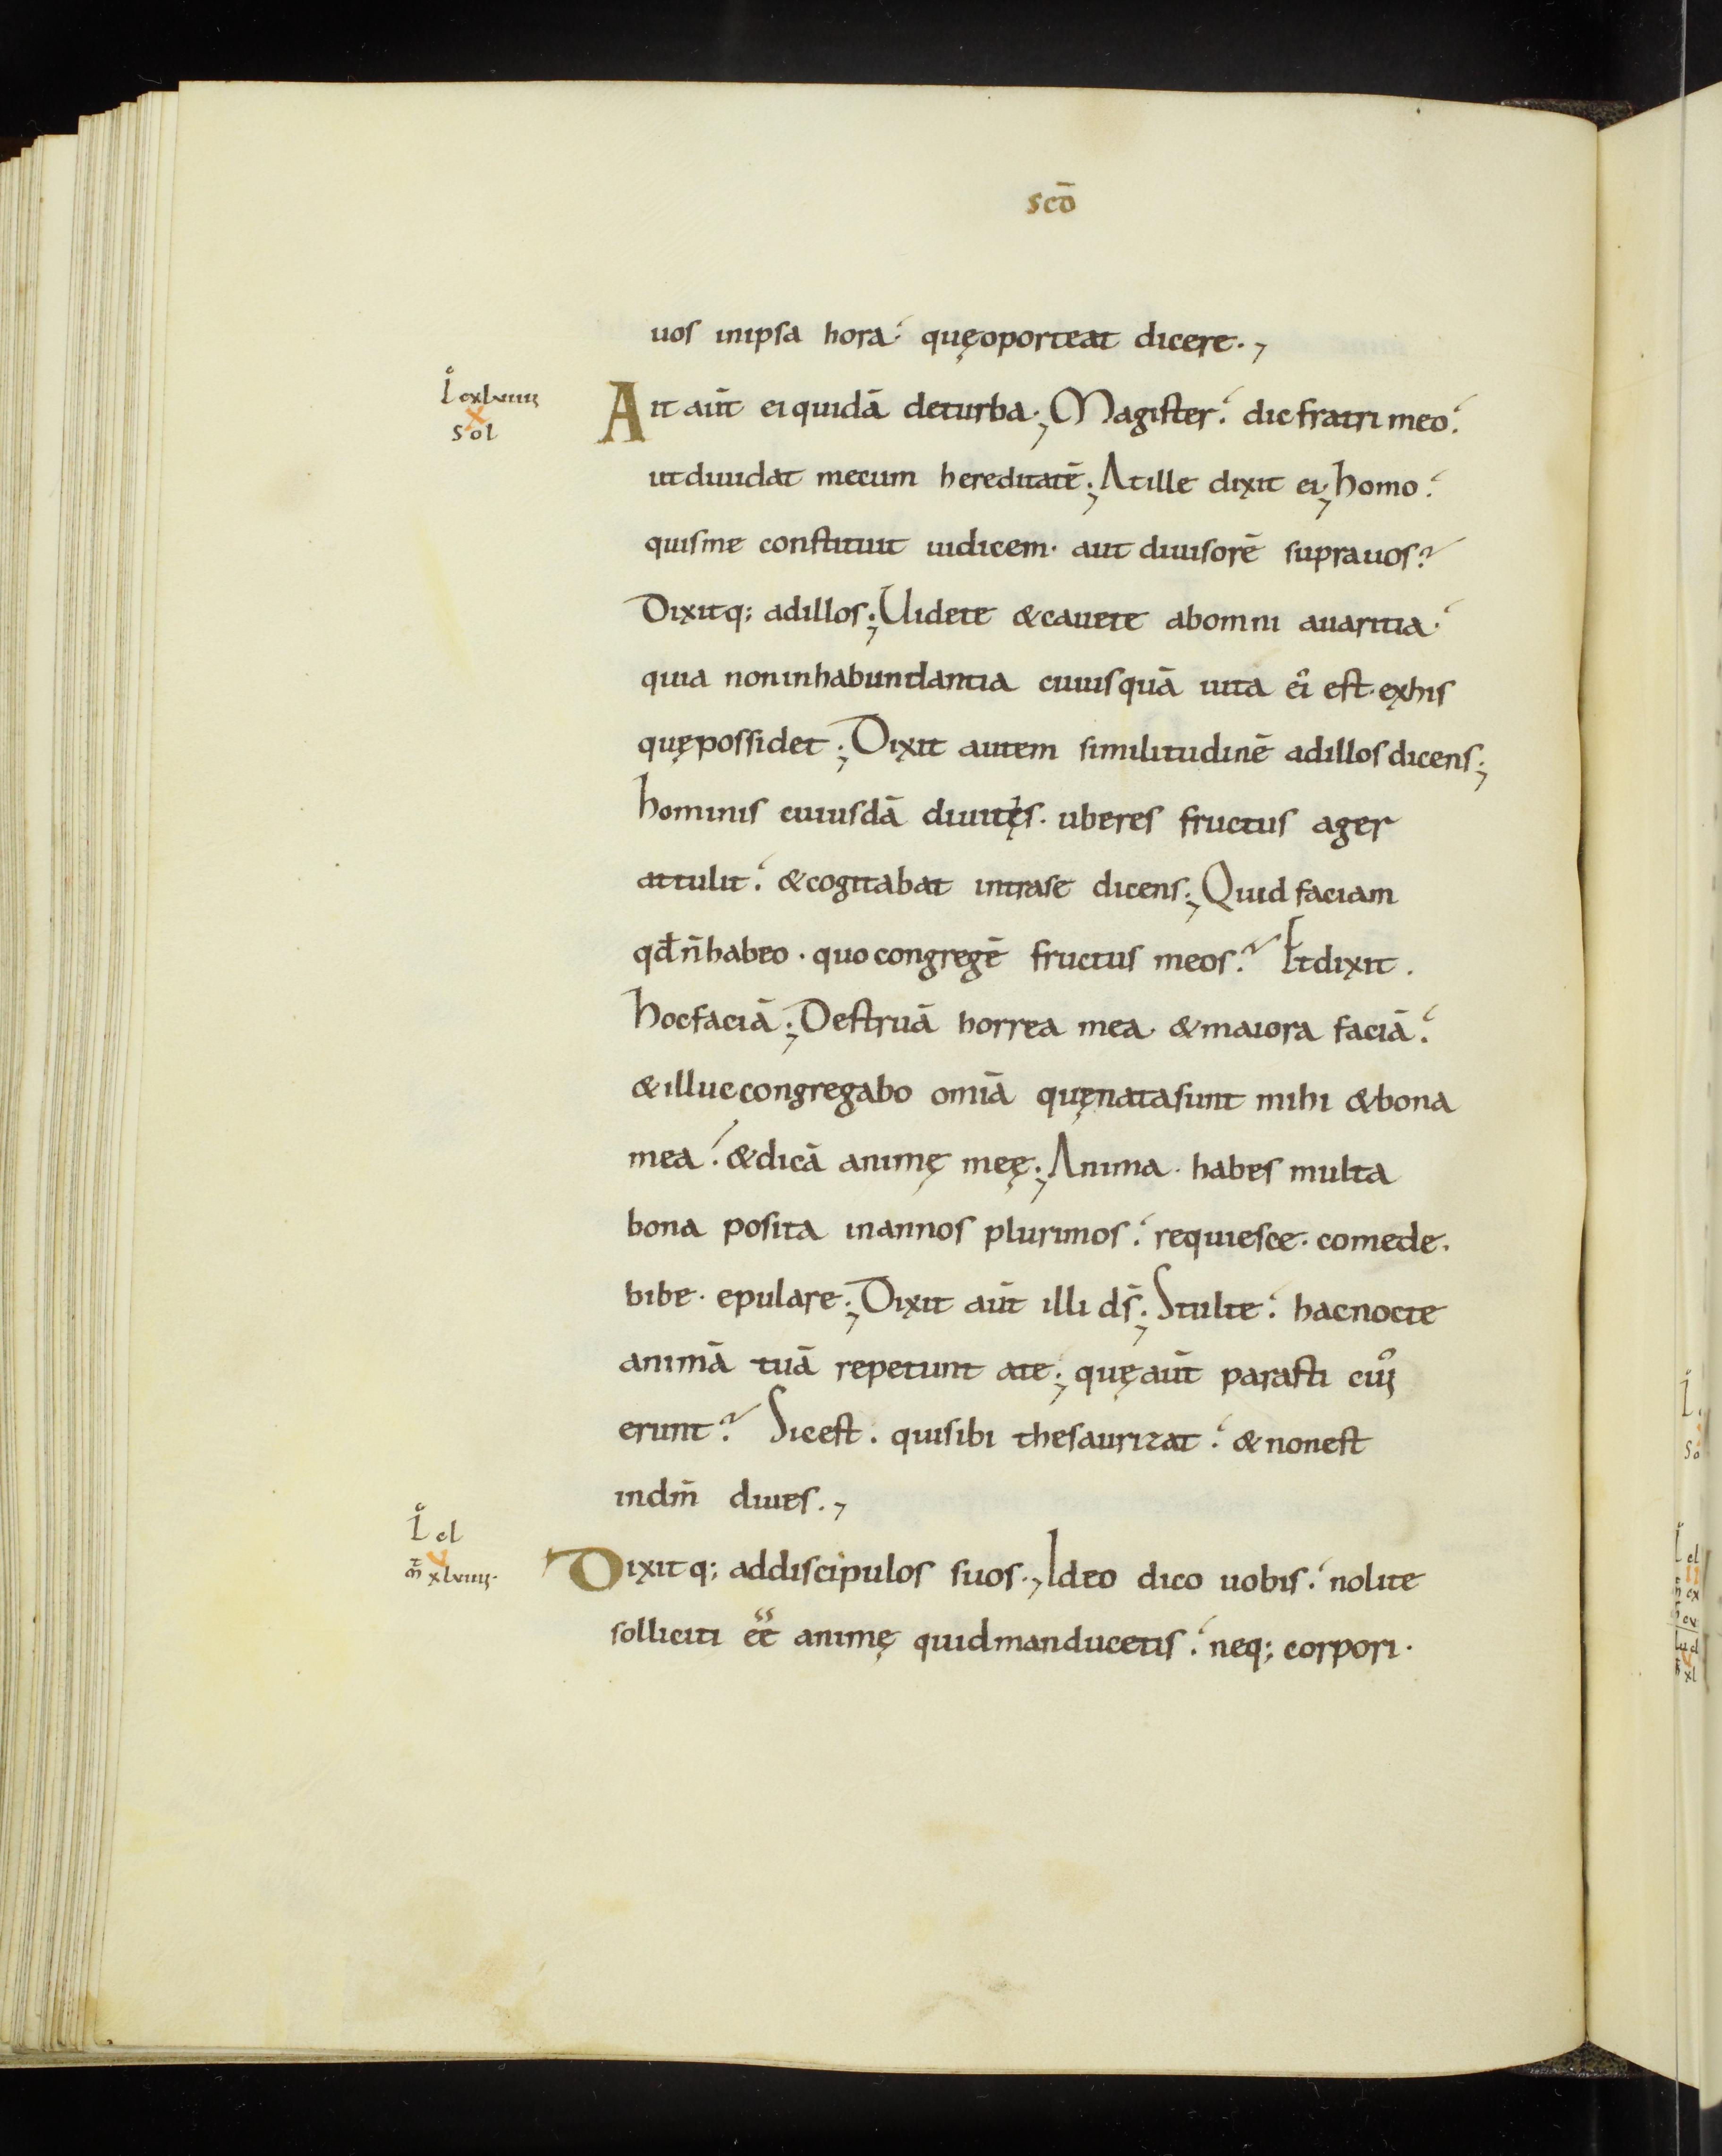 scō
uos inipsa hora. quęoporteat dicere.,
lu cxlviiii
x
sol
Ait aūt eiquidā deturba; Magister. dic fratri meo.
utdiuidat mecum hereditatē; Atille dixit ei; homo.
quisme constituit iudicem. aut diuisorē suprauos?
Dixitq; adillos; Uidete &cauete abomni auaritia.
quia noninhabundantia cuiusquā uita ei est. exhis
quępossidet; Dixit autem similitudinē adillosdicens;
hominis cuiusdā diuitis. uberes fructus ager
attulit. &cogitabat intrase dicens; Quid faciam
qđ n̄habeo. quo congregē fructus meos? Etdixit.
hocfaciā; Destruā horrea mea. &maiora faciā.
&illuccongregabo omīa quęnatasunt mihi &bona
mea. &dicā animę meę; Anima. habes multa
bona posita inannos plurimos. requiesce. comede.
bibe. epulare; Dixit aūt illi d̄s; Stulte. hacnocte
animā tuā repetunt ate; quęaūt parasti cui
erunt? Sicest. quisibi thesaurizat. &nonest
indm̄ diues.,
cl
v
xlviiii.
Dixitq; addiscipulos suos., Ideo dico uobis. nolite
solliciti ēē animę quidmanducetis. neq; corpori.